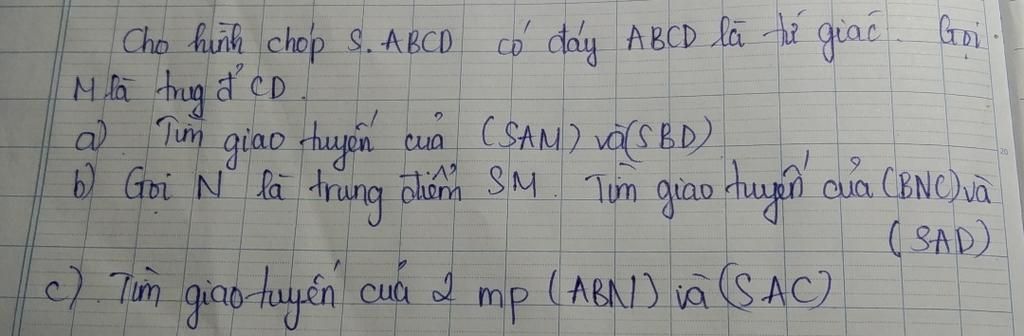 Cho hình chóp S.ABCD có đáy ABCD là tứ giác. Gọi
M là trug đ' CD.
a) Tìm giao tuyến của (SAM) và (SBD)
b) Gọi N là trung điểm SM. Tìm giao tuyến của (BNC) và
(SAD)
c) Tìm giao tuyến của 2 mp (ABN) và (SAC)